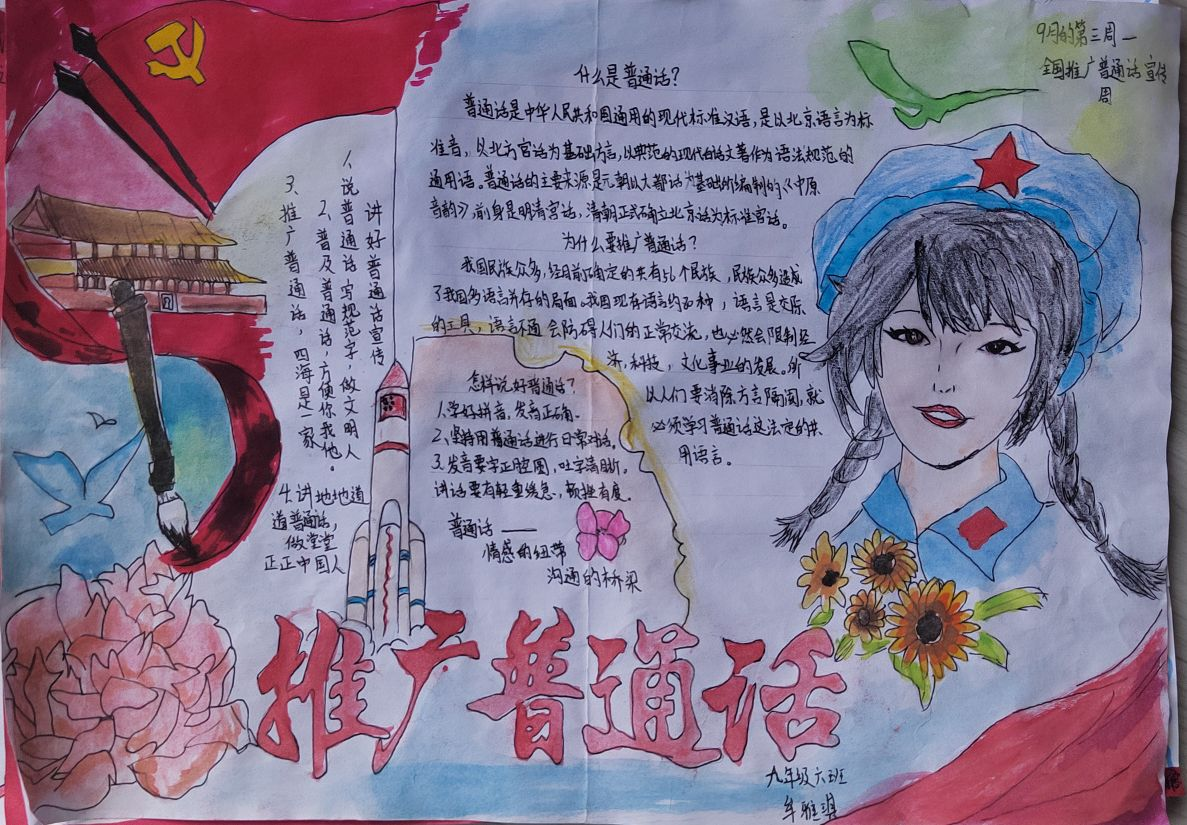 9月的第三周—
全国推广普通话宣传
周
什么是普通话?
普通话是中华人民共和国通用的现代标准汉语,是以北京语言为标
准音,以北方官话为基础方言,以典范的现代白话文著作为语法规范的
通用语。普通话的主要来源是元朝以大都话为基础所编制的《中原
音韵》,前身是明清官话,清朝正式确立北京话为标准官话。
为什么要推广普通话?
我国民族众多,经目前确定的共有56个民族,民族众多造成
了我国多语言并存的局面。我国现存语言约80种,语言是交际
的工具,语言不通会防碍人们的正常交流,也必然会限制经
济,科技,文化事业的发展。所
以人们要消除方言隔阂,就
必须学习普通话这法定的共
用语言。
怎样说好普通话?
1.学好拼音,发音正确。
2.坚持用普通话进行日常对话。
3.发音要字正腔圆,吐字清晰。
讲话要有轻重缓急,顿挫有度。
普通话——
情感的纽带
沟通的桥梁
讲好普通话宣传
1、说普通话,写规范字,做文明人
2、普及普通话,方便你我他。
3、推广普通话,四海是一家
4.讲地地道
道普通话,
做堂堂
正正中国人
推广普通话
九年级六班
牟雅